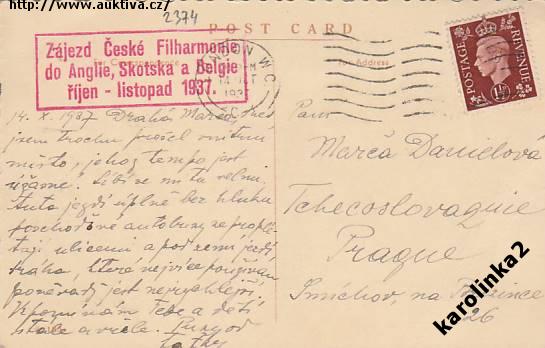 http://www.auktiva.cz/
2374
POST CARD
Zájezd České Filharmonie
do Anglie, Skotska a Belgie
říjen - listopad 1937.
For Address
LONDON W.C.
193
POSTAGE
REVENUE
14. X. 1937 Drahá Marčo, dnes
jsem trochu prošel vnitřní
město, jehož tempo jest
úžasné. Líbí se mi tu velmi.
Auta jezdí úplně bez hluku
poschoďové autobusy se proplé-
tají ulicemi a pod zemí jezdí
dráha, které nejvíce používám
poněvadž jest nejrychlejší.
Vzpomínám Tebe a dětí
stále a vřele.
Paní
Marča Danielová
Tchecoslovaquie
Prague
Smíchov, na
26
karolinka2